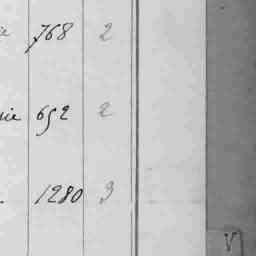 768 2
652 2
1280 3